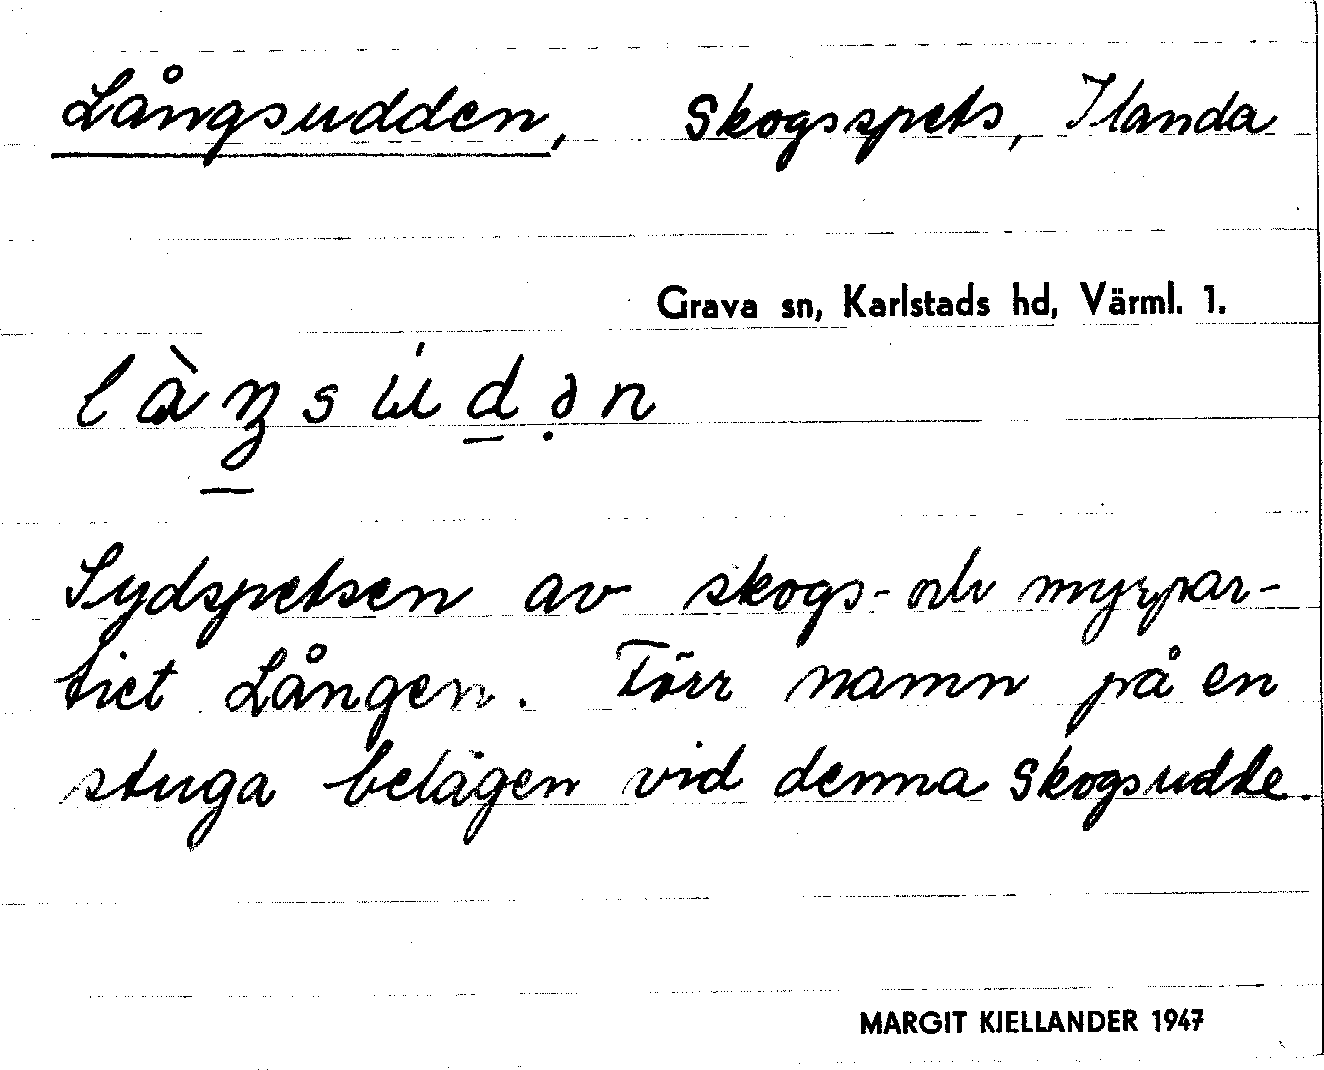 Långsudden, Skogsspets, Ilanda
Grava sn, Karlstads hd, Värml. 1.
Sydspetsen av skogs- och myrpar-
tiet Lången. Förr namn på en
stuga belägen vid denna skogsudde.
MARGIT KJELLANDER 1947